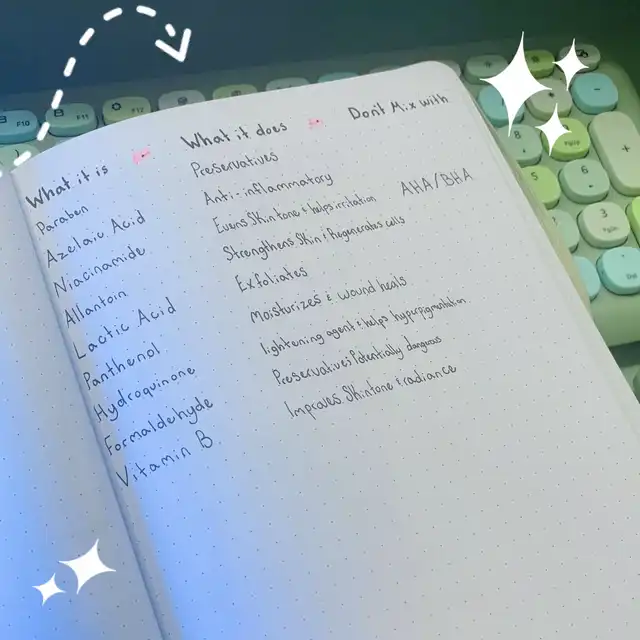 F10 F11 F12
What it is What it does Don't Mix with
Paraben Preservatives
Azelaic Acid Anti-inflammatory
Niacinamide Evens Skin tone & helps irritation AHA/BHA
Allantoin Strengthens Skin & Regenerates cells
Lactic Acid Exfoliates
Panthenol Moisturizes & wound heals
Hydroquinone lightening agent & helps hyperpigmentation
Formaldehyde Preservative & Potentially dangerous
Vitamin B Improves Skin tone & radiance
-
8
PgUp
+
5
6
3
PgDn
Del